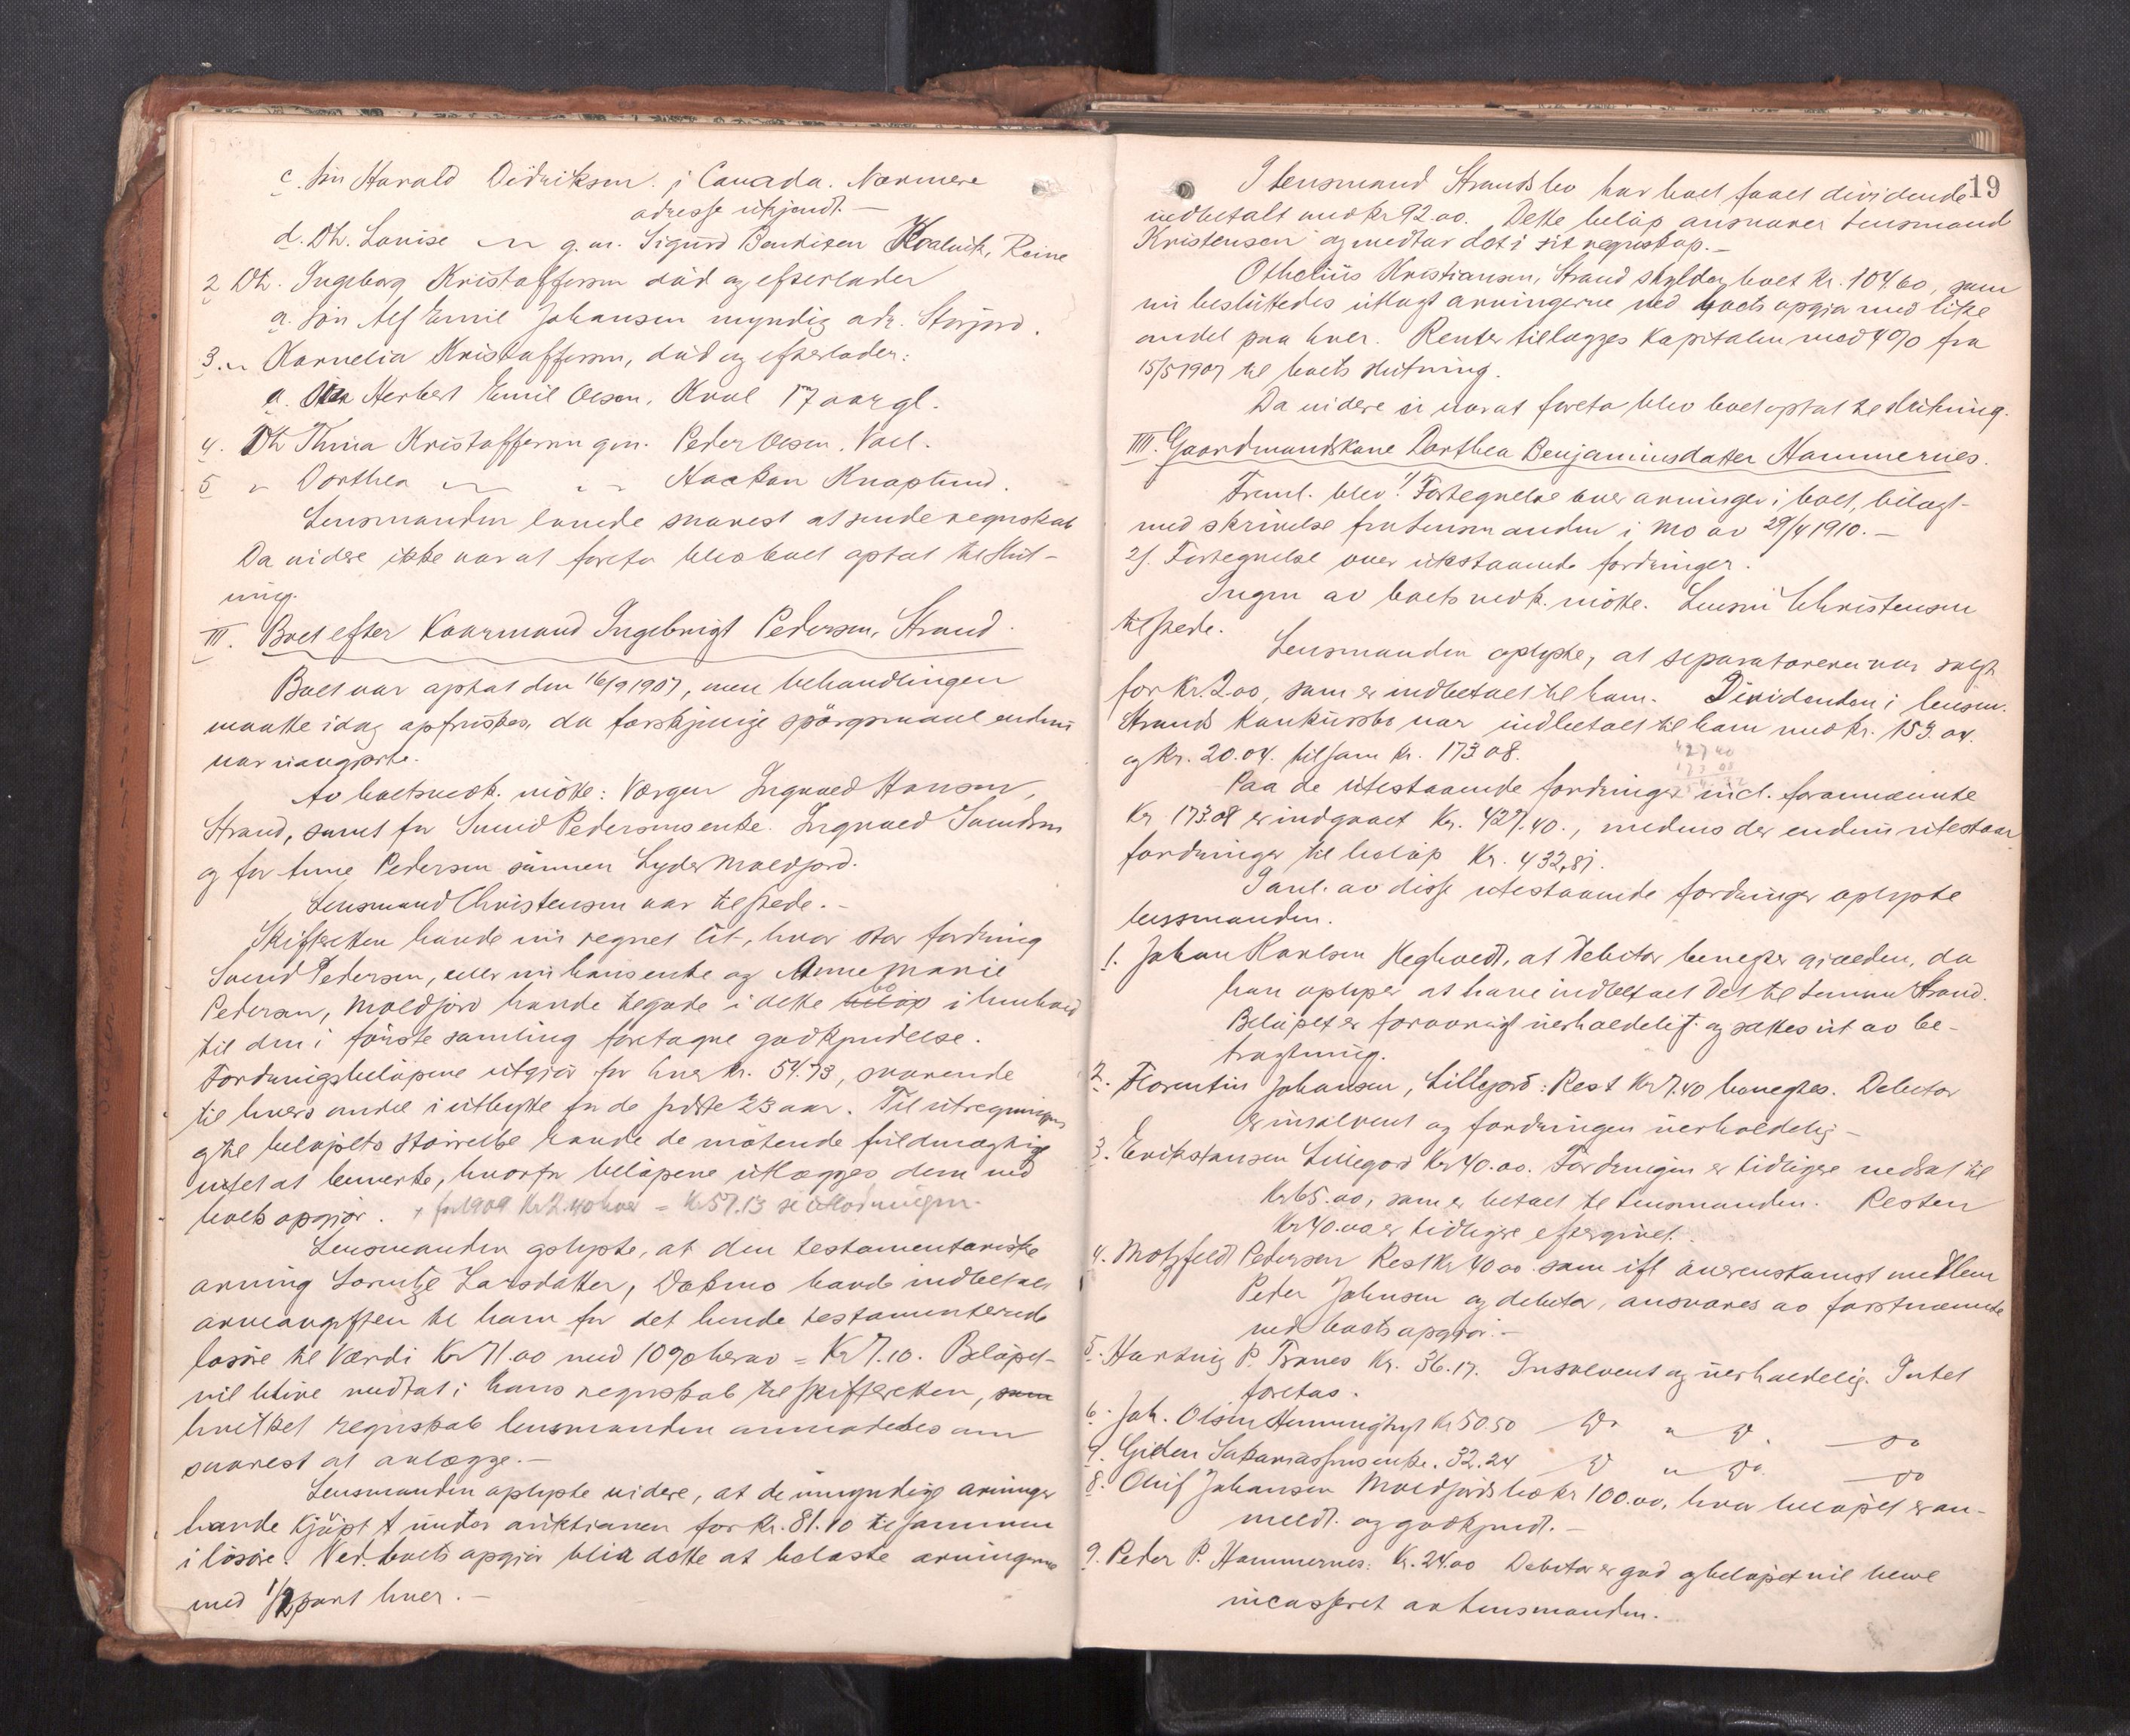 c. Søn Harald Didriksen. i Canada. Nærmere
adresse ukjendt. —
d. Dtr. Lovise — " — g. m. Sigurd Bendixen Kvalvik, Reine
2 Dtr. Ingeborg Kristoffersen død og efterlader
a. Søn Alf Emil Johansen myndig adr. Storjord.
3. " Karnelia Kristoffersen, død og efterlader:
a. Søn Herbert Emil Olsen, Kval 17 aar gl.
4. Dtr Thina Kristoffersen gm. Peder Olsen, Vall.
5 " Dorthea — " — " — Haakon Knaplund.
Lensmanden lovede snarest at sende regnskab
Da videre ikke var at foreta blev boet optat til slut-
ning.
III. Boet efter Kaarmand Ingebrigt Pedersen, Strand.
Boet var optat den 16/9 1907, men behandlingen
maatte idag opfriskes, da forskjellige spørgsmaal endnu
var uavgjorte.
Av boets vedk. møtte: Værgen Ingvald Hansen,
Strand, samt for Svend Pedersens enke. Ingvald Svendsen
og for Anne Pedersen sønnen Lyder Moldjord.
Lensmand Christensen var tilstede. —
Skifteretten havde nu regnet ut, hvor stor fordring
Svend Pedersen, eller nu hans enke og Anne Marie
Pedersen, Moldjord havde tilgode i dette beløp bo i henhold
til den i første samling foretagne godkjendelse.
Fordringsbeløpene utgjør for hver kr. 54.73, svarende
til hvers andel i utbytte for de sidste 23 aar. Til utregningen
og til beløpets størrelse havde de møtende fuldmægtige
intet at bemerke, hvorfor beløpene utlægges dem ved
boets opgjør. + for 1909 Kr 2.40 hver = Kr 57.13 se utlodningen.
Lensmanden oplyste, at den testamentariske
arving Lorentze Larsdatter, Dokmo havde indbetalt
arveavgiften til ham for det hende testamenterede
løsøre til værdi Kr 71.00 med 10% herav = Kr 7.10. Beløpet
vil blive medtat i hans regnskab til skifteretten, som
hvilket regnskab lensmanden anmodedes om
snarest at avlægge. —
Lensmanden oplyste videre, at de umyndige arvinger
havde kjøpt under auktionen for kr. 81.10 tilsammen
i løsøre. Ved boets opgjør blir dette at belaste arvingerne
med 1/2 part hver. —
19
I Lensmand Strands bo har boet faaet dividende
indbetalt med kr 92.00. Dette beløp ansvarer Lensmand
Kristensen og medtar det i sit regnskap. —
Othelius Kristiansen, Strand skylder boet kr. 104.60, som
nu besluttedes utlagt arvingerne ved boets opgjør med like
andel paa hver. Renter tillægges kapitalen med 4% fra
15/5 1907 til boets slutning.
Da videre ei var at foreta blev boet optat til slutning.
IIII. Gaardmandskone Dorthea Benjaminsdatter Hammernes.
Freml. blev 1/ Fortegnelse over arvinger i boet, bilagt
med skrivelse fra lensmanden i Mo av 29/4 1910. —
2/. Fortegnelse over utestaaende fordringer.
Ingen av boets vedk. møtte. Lensm Christensen
tilstede.
Lensmanden oplyste, at separatoren var solgt
for kr 2.00, som er indbetalt til ham. Dividenden i lensm.
Strands konkursbo var indbetalt til ham med kr. 153.04.
og kr. 20.04. tilsam kr. 173.08.
427 40
173 08
Paa de utestaaende fordringer incl. forannævnte
kr. 173.08 er indgaaet kr. 427.40., medens der endnu utestaar
fordringer til beløp kr. 432,81.
I anl. av disse utestaaende fordringer oplyste
lensmanden.
1. Johan Karlsen Hegholdt, at debitor benegter gjælden, da
han oplyser at have indbetalt det til lensm Strand.
Beløpet er forøvrigt uerholdelig og sættes ut av be-
tragtning.
2. Florentin Johansen, Lillejord: Rest kr 7.40 benegtes. Debitor
er insolvent og fordringen uerholdelig —
3. Erik Hansen Lillegjord kr 40.00. Fordringen er tidligere nedsat til
kr 65.00, som er betalt til lensmanden. Resten
kr 40.00 er tidligere eftergivet.
4. Motzfeldt Pedersen Rest kr 40.00 som ifl overenskomst mellem
Peder Johnsen og debitor, ansvares av førstnævnte
ved boets opgjør. —
5. Hartvig P. Tranes kr. 36.17. Insolvent og uerholdelig. Intet
foretas.
6. Joh. Olsen kr 50.50 Do " Do. — Do
7. enke. 32.24 Do " Do. — Do
8. Oluf Johansen Moldjords bo kr 100.00, hvor beløpet er an-
meldt og godkjendt. —
9. Peder P. Hammernes: kr. 24.00 Debitor er god og beløpet vil blive
incasseret av lensmanden.